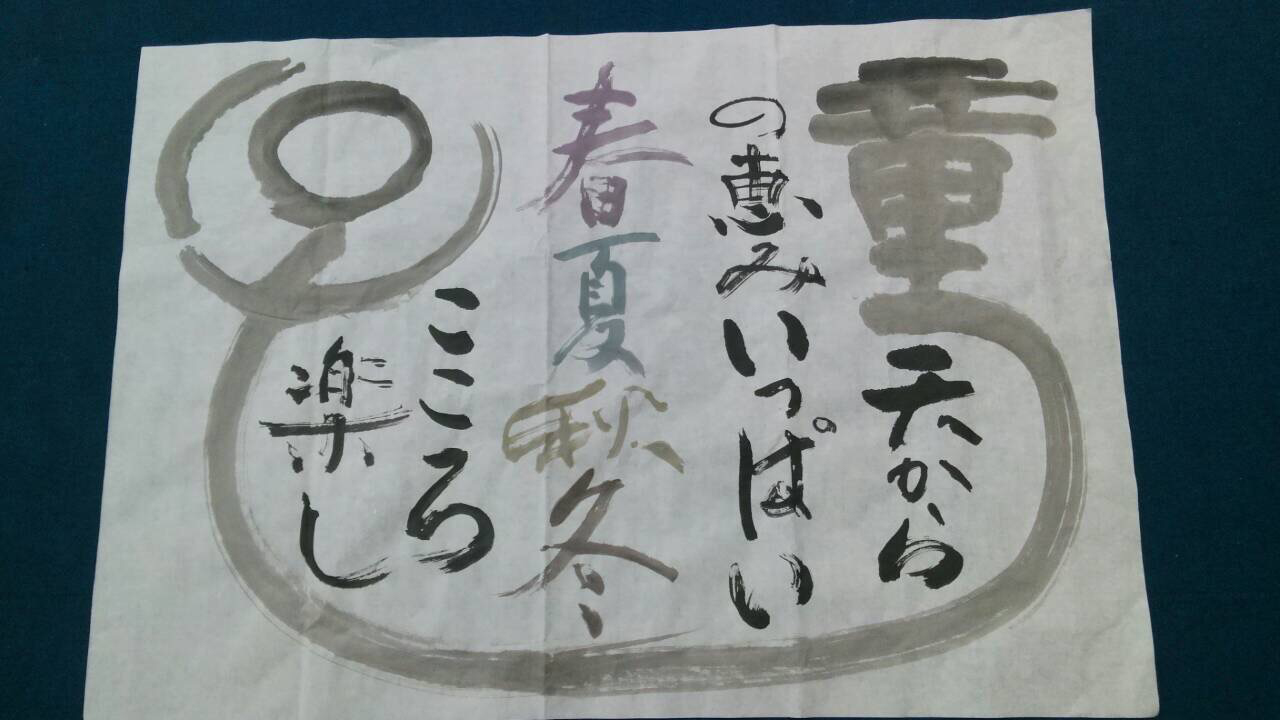 童
天から
の恵みいっぱい
春夏秋冬
こころ
楽し